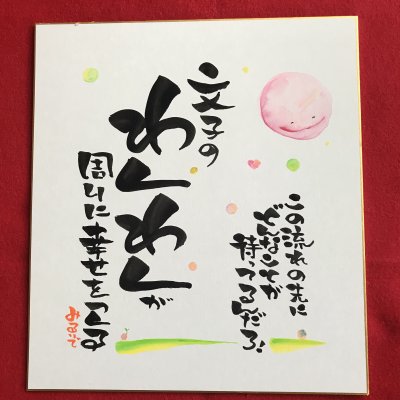 この流れの先に
どんなことが
待ってるんだろ!
文子の
わくわくが
周りに幸せをつくる